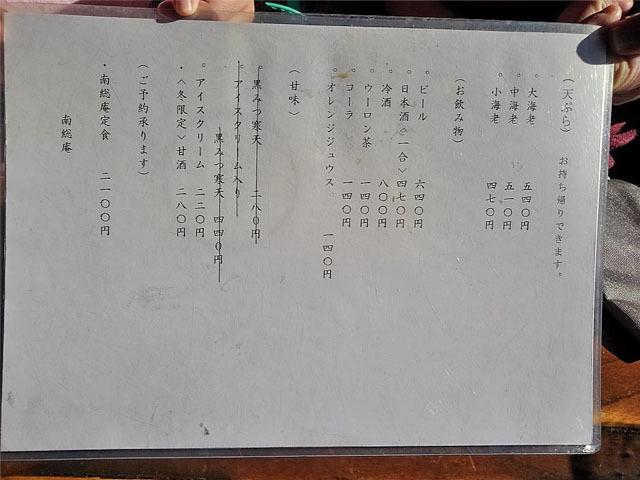 （天ぷら）　お持ち帰りできます。
。大海老　五四〇円
・中海老　五一〇円
。小海老　四七〇円
（お飲み物）
。ビール　六四〇円
。日本酒〈一合〉四七〇円
。冷酒　八〇〇円
。ウーロン茶　一四〇円
。コーラ　一四〇円
。オレンジジュウス　一四〇円
（甘味）
。黒みつ寒天　二八〇円
。アイスクリーム入り
黒みつ寒天　四四〇円
。アイスクリーム　二二〇円
・〈冬限定〉甘酒　二八〇円
（ご予約承ります）
・南総庵定食　二一〇〇円
南総庵